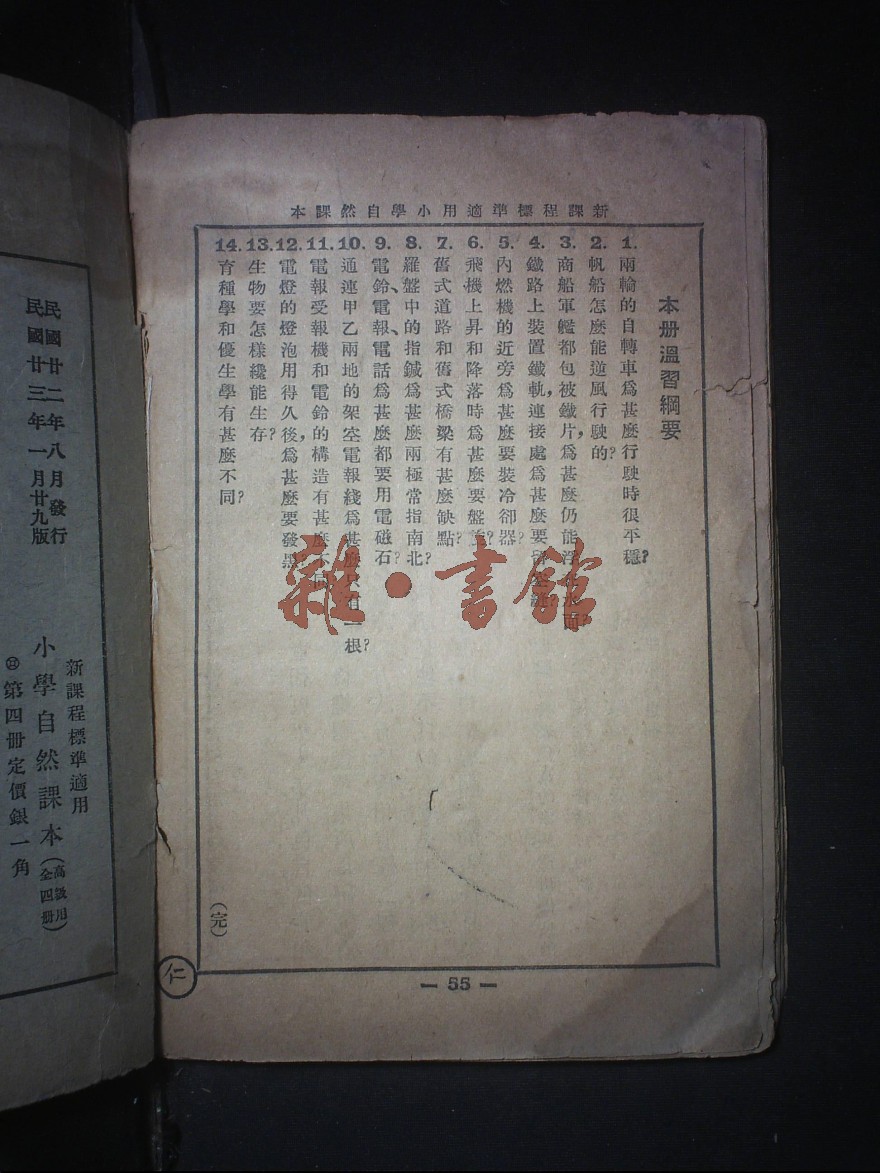 新課程標準適用小學自然課本
本册溫習綱要
1. 兩輪的自轉車爲甚麽行駛時很平穩?
2. 帆船怎麽能逆風行駛的?
3. 商船軍艦都包被鐵片,爲甚麽仍能浮 面?
4. 鐵路上裝置鐵軌,連接處爲甚麽要
5. 內燃機的近旁爲甚麽要裝冷卻器?
6. 飛機上昇和降落時爲甚麽要盤 ?
7. 舊式道路和舊式橋梁有甚麽缺點?
8. 羅盤中的指鍼爲甚麽兩極常指南北?
9. 電鈴、電報、電話爲甚麽都要用電磁石?
10. 通連甲乙兩地的架空電報綫爲甚麽 有一根?
11. 電報受報機和電鈴的構造有甚麽不同
12. 電燈的燈泡用得久後,爲甚麽要發黑?
13. 生物要怎樣纔能生存?
14. 育種學和優生學有甚麽不同?
(完)
— 55 —
仁
雜·書館
新課程標準適用
小學自然課本(高級用 全四册)
第四册定價銀一角
民國廿二年八月發行
民國廿三年一月廿九版